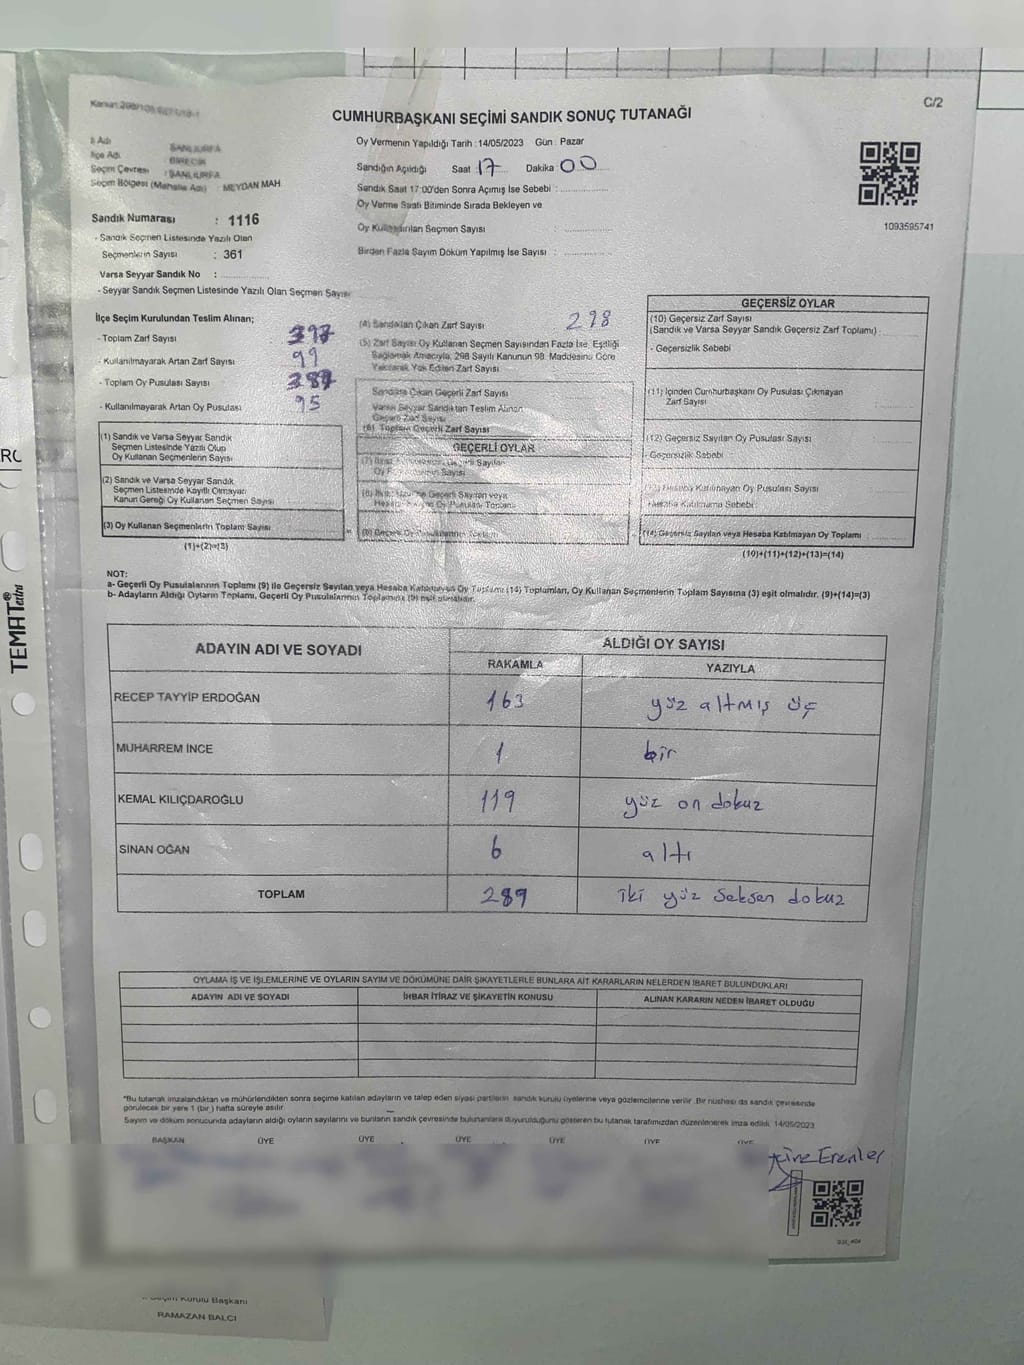 C/2
CUMHURBAŞKANI SEÇİMİ SANDIK SONUÇ TUTANAĞI
Oy Vermenin Yapıldığı Tarih : 14/05/2023 Gün : Pazar
Sandığın Açıldığı Saat 17 Dakika 00
Sandık Saat 17:00'den Sonra Açımış İse Sebebi :
Oy Verme Saati Bitiminde Sırada Bekleyen ve
Oy Kullandırılan Seçmen Sayısı :
Birden Fazla Sayım Döküm Yapılmış İse Sayısı :
1093595741
İl Adı : ŞANLIURFA
İlçe Adı : BİRECİK
Seçim Çevresi : ŞANLIURFA
Seçim Bölgesi (Mahalle Adı) : MEYDAN MAH
Sandık Numarası : 1116
- Sandık Seçmen Listesinde Yazılı Olan
Seçmenlerin Sayısı : 361
Varsa Seyyar Sandık No :
- Seyyar Sandık Seçmen Listesinde Yazılı Olan Seçmen Sayısı
İlçe Seçim Kurulundan Teslim Alınan;
- Toplam Zarf Sayısı
- Kullanılmayarak Artan Zarf Sayısı 99
- Toplam Oy Pusulası Sayısı
- Kullanılmayarak Artan Oy Pusulası 95
(1) Sandık ve Varsa Seyyar Sandık
Seçmen Listesinde Yazılı Olup
Oy Kullanan Seçmenlerin Sayısı
(2) Sandık ve Varsa Seyyar Sandık
Seçmen Listesinde Kayıtlı Olmayan
Kanun Gereği Oy Kullanan Seçmen Sayısı
(3) Oy Kullanan Seçmenlerin Toplam Sayısı
(1)+(2)=(3)
(4) Sandıktan Çıkan Zarf Sayısı 298
(5) Zarf Sayısı Oy Kullanan Seçmen Sayısından Fazla İse, Eşitliği
Sağlamak Amacıyla, 298 Sayılı Kanunun 98. Maddesine Göre
Yakılarak Yok Edilen Zarf Sayısı
Sandıkta Çıkan Geçerli Zarf Sayısı
Varsa Seyyar Sandıktan Teslim Alınan
Geçerli Zarf Sayısı
(6) Toplam Geçerli Zarf Sayısı
GEÇERLİ OYLAR
GEÇERSİZ OYLAR
(10) Geçersiz Zarf Sayısı
(Sandık ve Varsa Seyyar Sandık Geçersiz Zarf Toplamı)
- Geçersizlik Sebebi
(11) İçinden Cumhurbaşkanı Oy Pusulası Çıkmayan
Zarf Sayısı
(12) Geçersiz Sayılan Oy Pusulası Sayısı
- Geçersizlik Sebebi
(13) Hesaba Katılmayan Oy Pusulası Sayısı
- Hesaba Katılmama Sebebi
(14) Geçersiz Sayılan veya Hesaba Katılmayan Oy Toplamı
(10)+(11)+(12)+(13)=(14)
NOT:
a- Geçerli Oy Pusulalarının Toplamı (9) ile Geçersiz Sayılan veya Hesaba Katılmayan Oy Toplamı (14) Toplamları, Oy Kullanan Seçmenlerin Toplam Sayısına (3) eşit olmalıdır. (9)+(14)=(3)
b- Adayların Aldığı Oyların Toplamı, Geçerli Oy Pusulalarının Toplamına (9) eşit olmalıdır.
ADAYIN ADI VE SOYADI ALDIĞI OY SAYISI
RAKAMLA YAZIYLA
RECEP TAYYİP ERDOĞAN 163 yüz altmış üç
MUHARREM İNCE 1 bir
KEMAL KILIÇDAROĞLU 119 yüz on dokuz
SİNAN OĞAN 6 altı
TOPLAM 289 iki yüz seksen dokuz
OYLAMA İŞ VE İŞLEMLERİNE VE OYLARIN SAYIM VE DÖKÜMÜNE DAİR ŞİKAYETLERLE BUNLARA AİT KARARLARIN NELERDEN İBARET BULUNDUKLARI
ADAYIN ADI VE SOYADI İHBAR İTİRAZ VE ŞİKAYETİN KONUSU ALINAN KARARIN NEDEN İBARET OLDUĞU
*Bu tutanak imzalandıktan ve mühürlendikten sonra seçime katılan adayların ve talep eden siyasi partilerin sandık kurulu üyelerine veya gözlemcilerine verilir. Bir nüshası da sandık çevresinde
görülecek bir yere 1 (bir) hafta süreyle asılır.
Sayım ve döküm sonucunda adayların aldığı oyların sayılarını ve bunların sandık çevresinde bulunanlara duyurulduğunu gösteren bu tutanak tarafımızdan düzenlenerek imza edildi. 14/05/2023
BAŞKAN ÜYE ÜYE ÜYE ÜYE ÜYE ÜYE
Erenler
Kurulu Başkanı
RAMAZAN BALCI
TEMAT extra